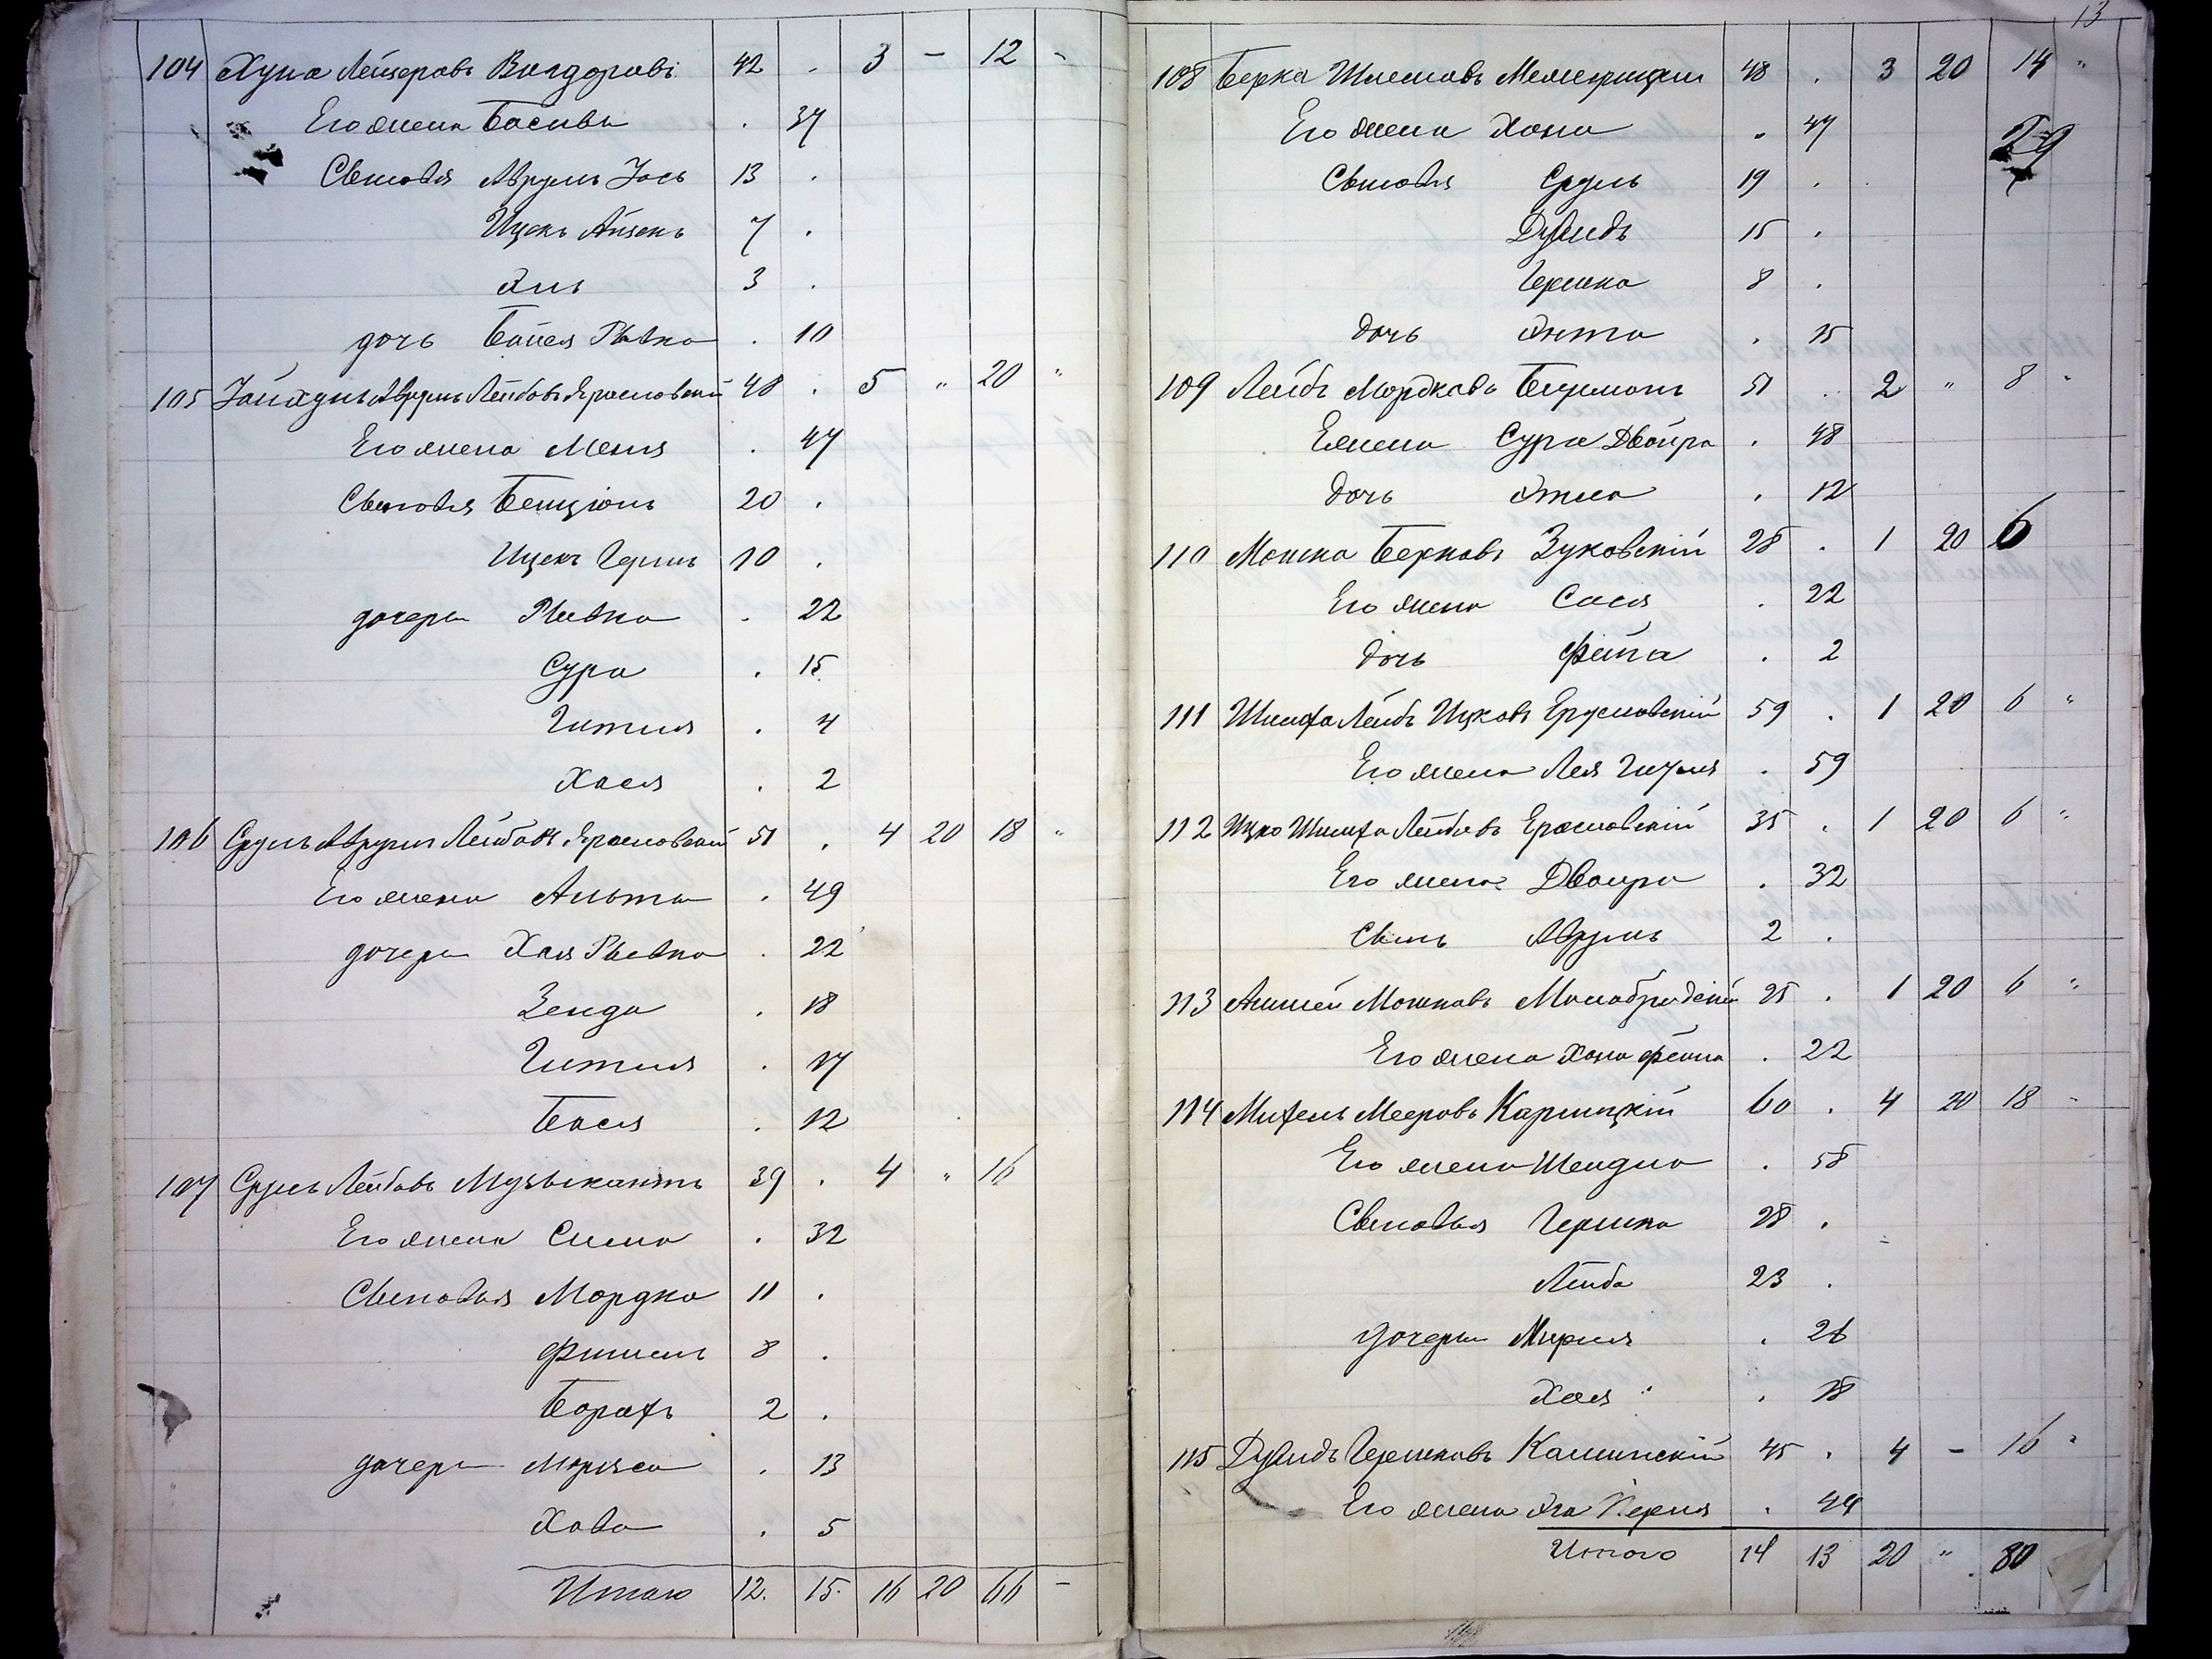 104 Хуна Лейзеровъ Вигдоровъ 42 . 3 - 12 -
Его жена Басива . 37
Сыновья Аврумъ Іось 13 .
Ицекъ Айзекъ 7 .
Эль 3 .
дочь Бейся Рывка . 10
105 Аврумъ Лейбовъ Ярославскій 48 . 5 " 20 "
Его жена Меня . 47
Сыновья Бенціонъ 20 .
Ицекъ Гершъ 10 .
дочери Рывка . 22
Сура . 15
Гитля . 4
Хася . 2
106 Сруль Аврумъ Лейбовъ Ярославскій 51 . 4 20 18 "
Его жена Альта . 49
дочери Хая Рывка . 22
Зенда . 18
Гитля . 17
Бася . 12
107 Сруль Лейбовъ Музыкантъ 39 . 4 " 16
Его жена Сима . 32
Сыновья Мордко 11 .
Фишель 8 .
Борохъ 2 .
дочери . 13
Хава . 5
Итого 12. 15. 16 20 66 -
13
108 Берка Шлемовъ 48 . 3 20 14 "
Его жена Хана . 47
29
Сыновья Сруль 19 .
Дувидъ 15 .
Гершко 8 .
дочь Энта . 15
109 Лейбъ Мордковъ 51 . 2 " 8 "
Ежена Сура Двойра . 48
дочь Этля . 12
110 Мошко Берковъ Зуковскій 28 . 1 20 6
Его жена Сися . 22
дочь Фейга . 2
111 Шимха Лейбъ Ицковъ Ерусловскій 59 . 1 20 6 "
Его жена Лея Гитля . 59
112 Ицко Шимха Лейбовъ Ерасловскій 35 . 1 20 6 "
Его жена Двойра . 32
Сынъ Аврумъ 2 .
113 Аншей Мошковъ 25 . 1 20 6 "
Его жена Хана Фейга . 22
114 Михель Мееровъ Карлицкій 60 . 4 20 18 -
Его жена Шендла . 58
Сыновья Гершко 28 .
Лейба 23 .
Дочери Мирля . 26
Хая . 18
115 Дувидъ Гершковъ Калинскій 45 . 4 - 16 "
Его жена . 44
Итого 14 13 20 " 80